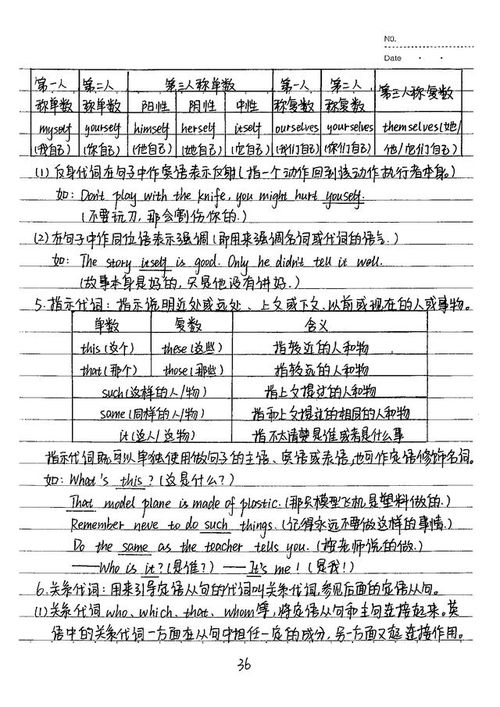 No.
Date
第一人 第二人 第三人称单数 第一人 第二人 第三人称复数
称单数 称单数 阳性 阴性 中性 称复数 称复数
myself yourself himself herself itself ourselves yourselves themselves(她/
(我自己) (你自己) (他自己) (她自己) (它自己) (我们自己) (你们自己) 他/它们自己)
(1)反身代词在句子中作宾语表示反射(指一个动作回到该动作执行者本身。)
如: Don't play with the knife, you might hurt youself.
(不要玩刀,那会割伤你的.)
(2)在句子中作同位语表示强调(即用来强调名词或代词的语气.)
如: The story itself is good. Only he didn't tell it well.
(故事本身是好的,只是他没有讲好.)
5.指示代词: 指示说明近处或远处、上文或下文、以前或现在的人或事物。
单数 复数 含义
this(这个) these(这些) 指较近的人和物
that(那个) those(那些) 指较远的人和物
such(这样的人/物) 指上文提过的人和物
same(同样的人/物) 指和上文提过的相同的人和物
it(这人/这物) 指不太清楚是谁或者是什么事
指示代词既可以单独使用做句子的主语、宾语或表语,也可作定语修饰名词。
如: What's this?(这是什么?)
That model plane is made of plastic.(那只模型飞机是塑料做的.)
Remember neve to do such things.(记得永远不要做这样的事情.)
Do the same as the teacher tells you.(按老师说的做.)
——Who is it?(是谁?) ——It's me!(是我!)
6.关系代词: 用来引导定语从句的代词叫关系代词,参见后面的定语从句。
(1)关系代词who、which、that、whom等,将定语从句和主句连接起来。英
语中的关系代词一方面在从句中担任一定的成分,另一方面又起连接作用。
36